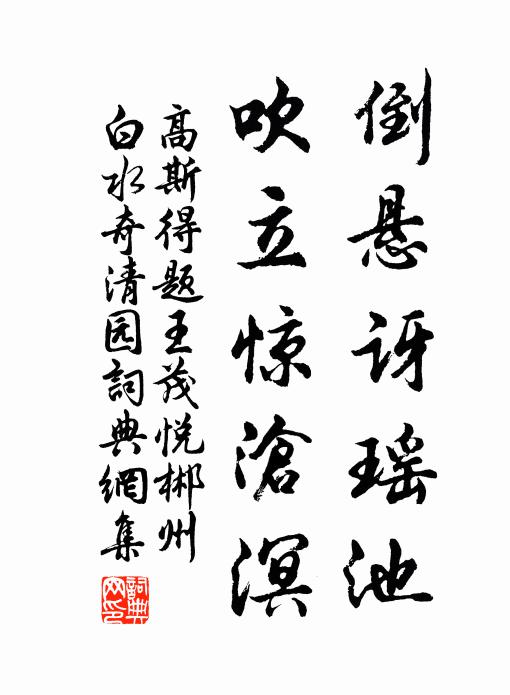 倒悬讶瑶池
吹立惊滄溟
高斯得题王茂悦郴州
白水奇清园詞典網集
詞典网印